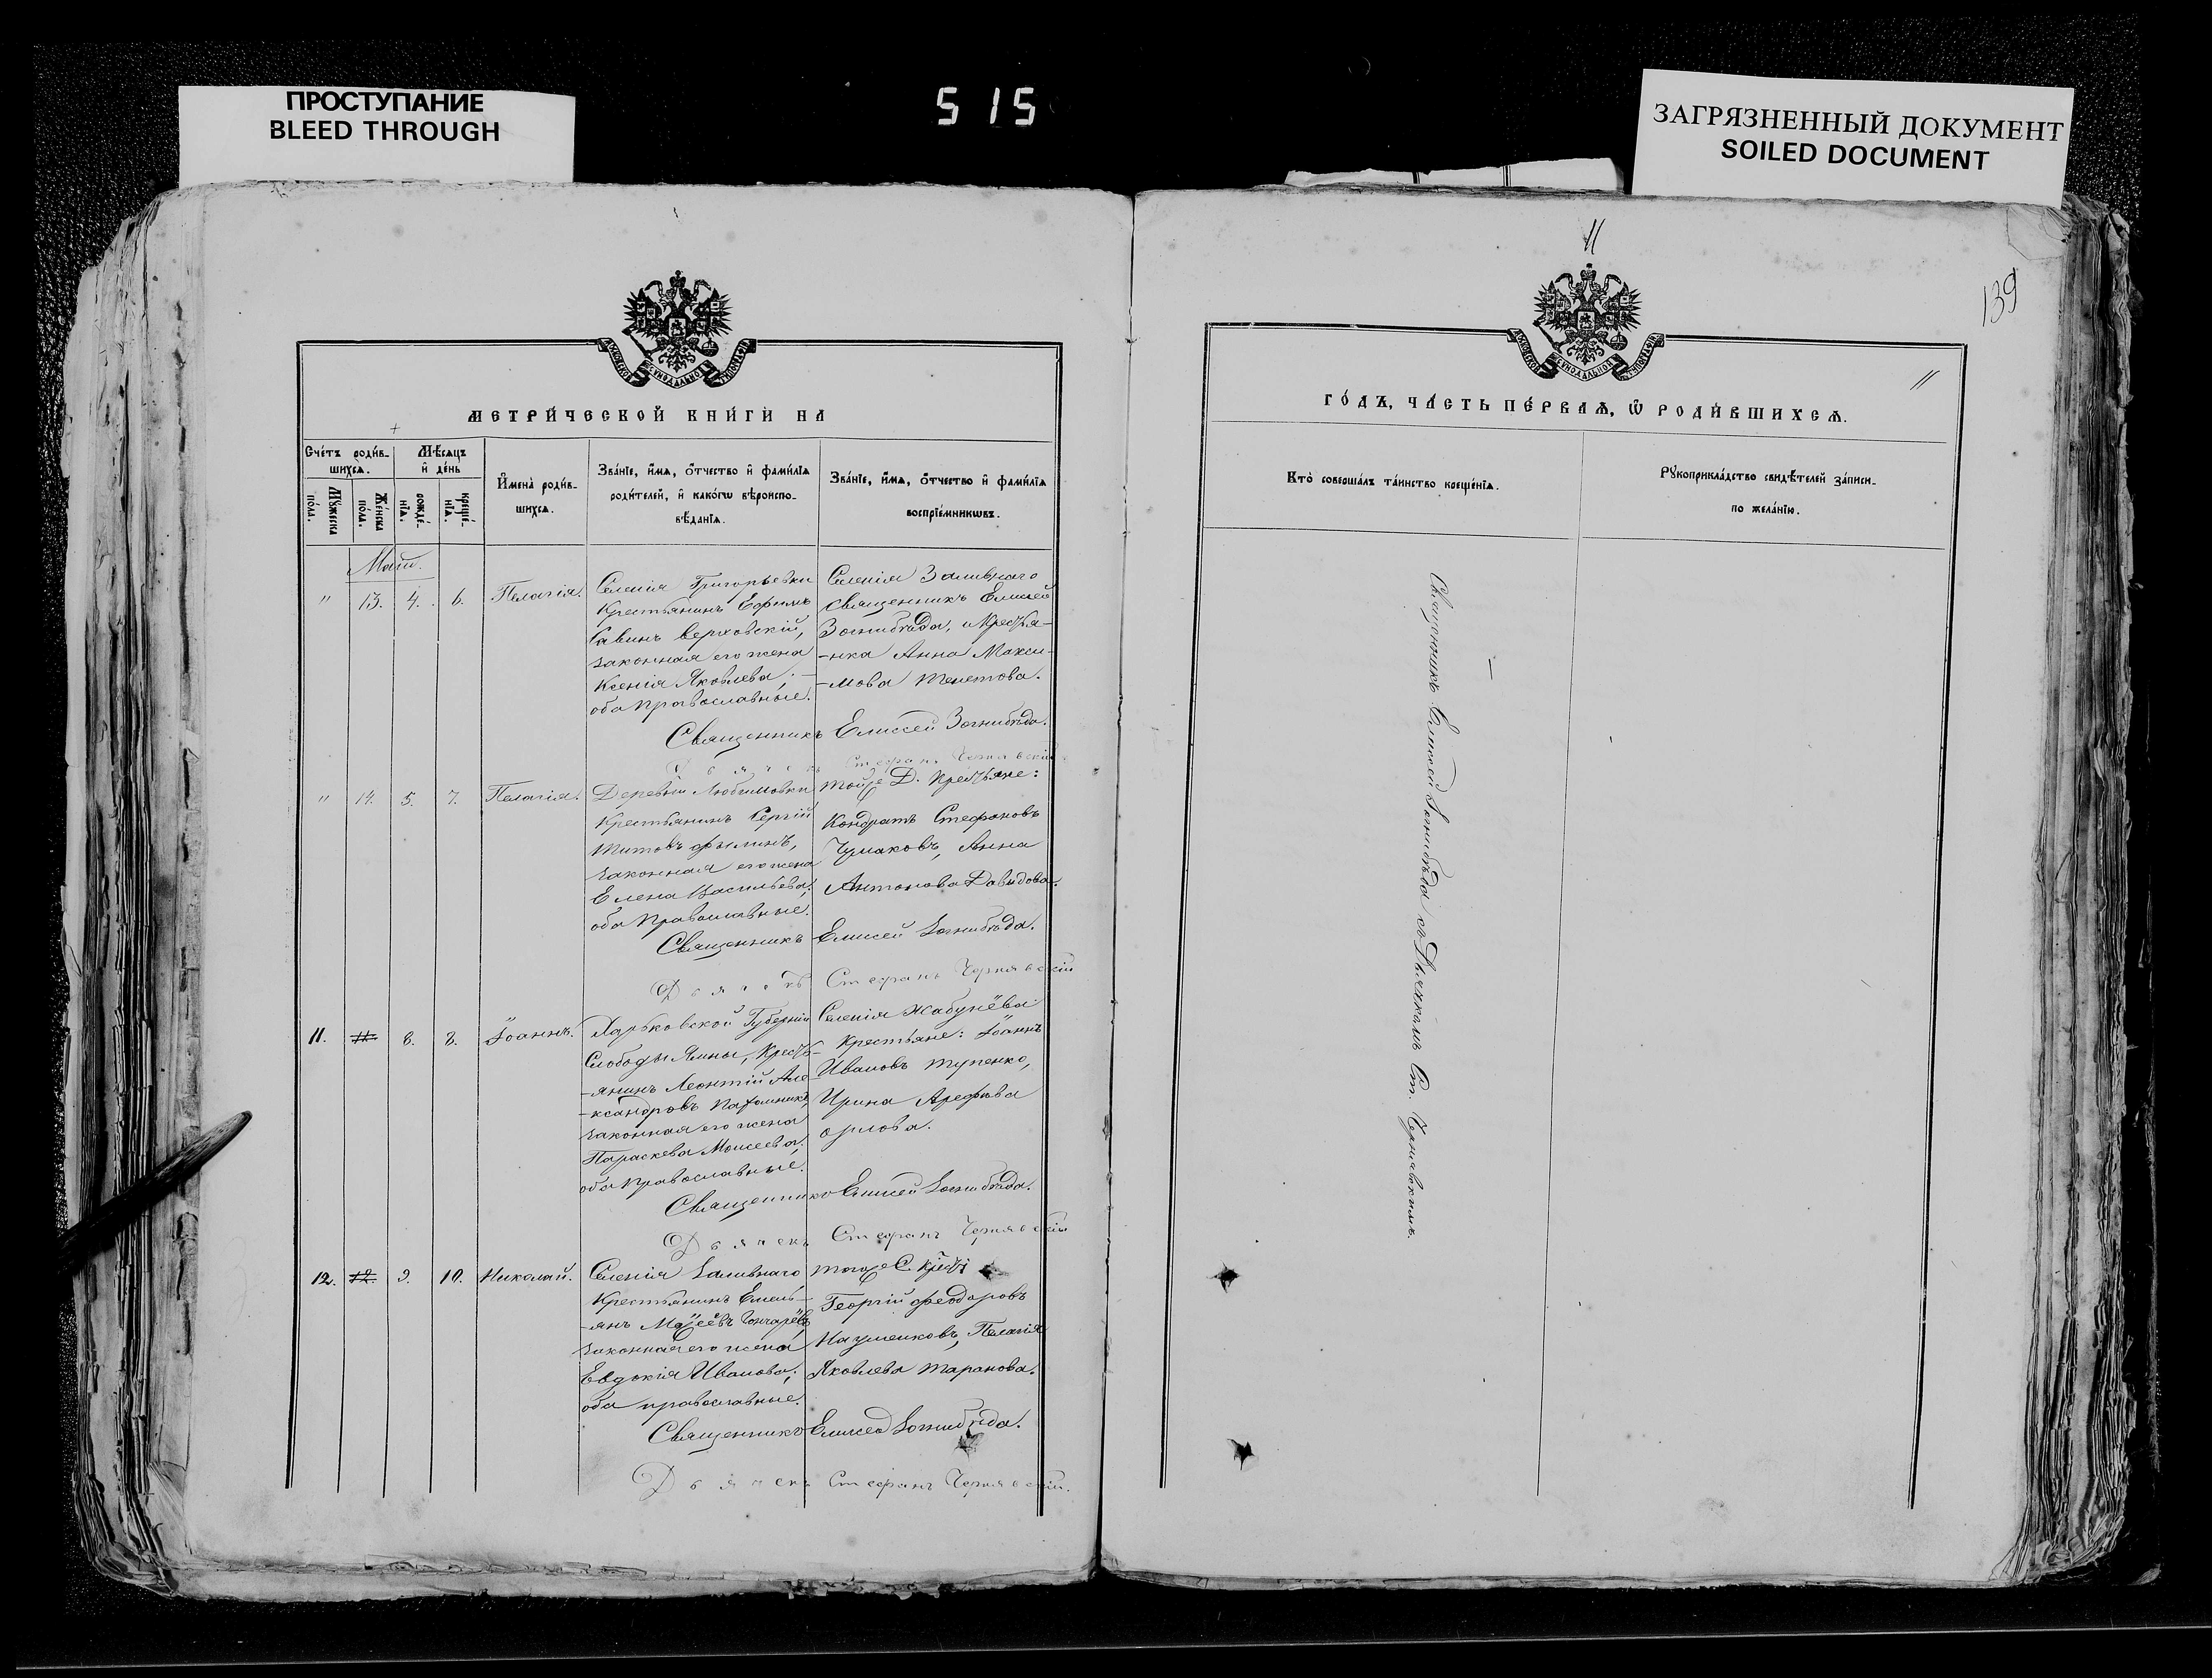 ПРОСТУПАНИЕ
BLEED THROUGH
515
ЗАГРЯЗНЕННЫЙ ДОКУМЕНТ
SOILED DOCUMENT
МЕТРИЧЕСКОЙ КНИГИ НА
Счетъ родив-
шихся.
Мѣсяцъ
и день
Имена родив-
шихся.
Званіе, имя, отчество и фамилія
родителей, и какогѡ вѣроиспо-
вѣданія.
Званіе, имя, отчество и фамилія
воспріемникѡвъ.
Мужеска
пола.
Женска
пола.
рожде-
нія.
креще-
нія.
Маій.
" 13. 4. 6. Пелагія.
Селенія Григорьевки
Крестьянинъ Ефимъ
Савинъ Верховскій,
законная его жена
Ксенія Яковлева; –
оба Православные.
Селенія Заливнаго
священникъ Елисей
Зогнибѣда, и Крестья-
-нка Анна Макси-
-мова Тенетова.
Священникъ Елиссей Зогнибѣда.
Дьячекъ Стефанъ Чернявскій
" 14. 5. 7. Пелагія.
Деревни Любимовки
Крестьянинъ Сергій
Титовъ
законная его жена
Елена Васильева;
оба Православные.
Тойже Д. Крестьяне:
Кондратъ Стефановъ
Чумаковъ, Анна
Антонова Давидова.
Священникъ Елисей Зогнибѣда.
Дьячекъ Стефанъ Чернявскій
11. 11. 8. 8. Іоаннъ.
Харьковской Губерніи
Слободы Ямны, Кресть-
-янинъ Леонтій Але-
-ксандровъ
законная его жена
Параскева Моисеева;
оба Православные.
Селенія Жабунёва
Крестьяне: Іоаннъ
Ивановъ Тупенко,
Ирина Арефьева
Орлова.
Священникъ Елисей Зогнибѣда.
Дьячекъ Стефанъ Чернявскій
12. 12. 9. 10. Николай.
Селенія Заливнаго
Крестьянинъ Емель-
-янъ Моѵсеевъ Гончарёвъ,
законная его жена
Евдокія Иванова;
оба православные.
Тогоже С.
Георгій Феодоровъ
Науменковъ, Пелагія
Яковлева Таранова.
Священникъ Елисей Зогнибѣда.
Дьячекъ Стефанъ Чернявскій.
11
139
11
ГОДЪ, ЧАСТЬ ПЕРВАЯ, Ѡ РОДИВШИХСЯ.
Кто совершалъ таинство крещенія.
Рукоприкладство свидѣтелей записи
по желанію.
Священникъ Елисей Зогнибѣда съ Дьячкомъ Ст. Чернявскимъ.